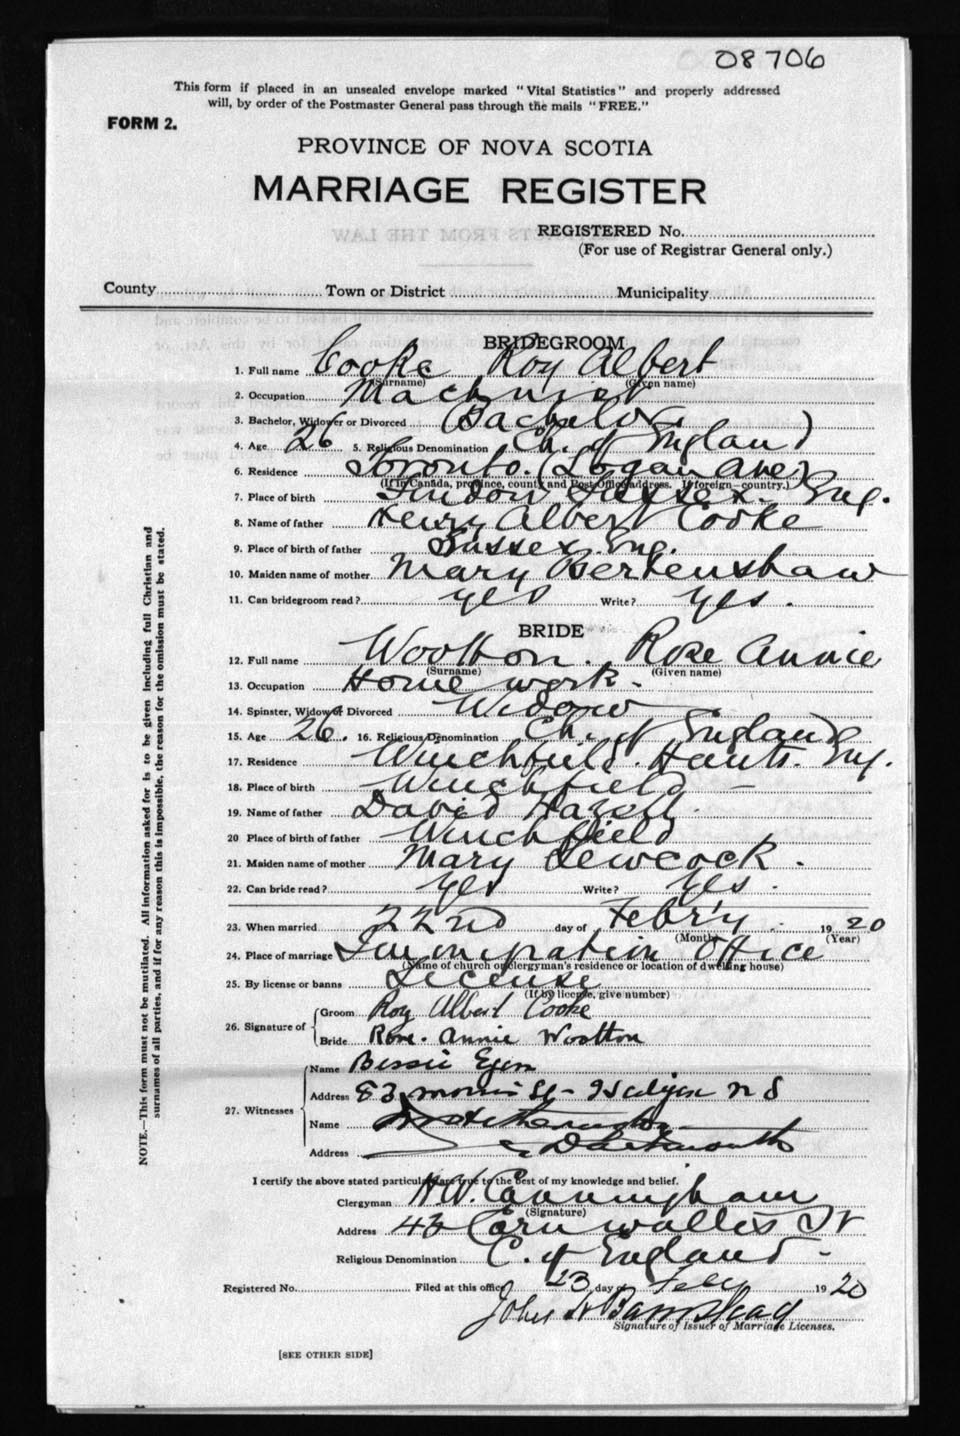 08706
This form if placed in an unsealed envelope marked "Vital Statistics" and properly addressed
will, by order of the Postmaster General pass through the mails "FREE."
FORM 2.
PROVINCE OF NOVA SCOTIA
MARRIAGE REGISTER
REGISTERED No.
(For use of Registrar General only.)
County Town or District Municipality
BRIDEGROOM
1. Full name Cooke Roy Albert
(Surname) (Given name)
2. Occupation Machinist
3. Bachelor, Widower or Divorced (Bachelor
4. Age 26 5. Religious Denomination Ch. of England
6. Residence Toronto. (Logan Ave)
(If in Canada, province, county and Post Office address. If foreign—country.)
7. Place of birth Sussex. Eng.
8. Name of father Henry Albert Cooke
9. Place of birth of father Sussex Eng.
10. Maiden name of mother Mary Bertenshaw
11. Can bridegroom read? yes Write? yes.
BRIDE
12. Full name Wootton. Rose Annie
(Surname) (Given name)
13. Occupation Home work.
14. Spinster, Widow or Divorced Widow
15. Age 26. 16. Religious Denomination Ch. of England
17. Residence Winchfield. Hants. Eng.
18. Place of birth Winchfield —
19. Name of father David
20 Place of birth of father Winchfield
21. Maiden name of mother Mary
22. Can bride read? yes Write? yes.
23. When married 22nd day of Febr'y 1920
(Month) (Year)
24. Place of marriage Immigration Office
(Name of church or clergyman's residence or location of dwelling house)
25. By license or banns License
(If by license, give number)
26. Signature of Groom Roy Albert Cooke
Bride Rose. Annie Wootton
27. Witnesses Name Bessie Egan
Address 83 Morris St - Halifax N S
Name
Address Dartmouth
I certify the above stated particulars are true to the best of my knowledge and belief.
Clergyman H.W. Cunningham
(Signature)
Address 43 Cornwallis St
Religious Denomination C. of England -
Registered No. Filed at this office 23 day of Feby 1920
John
Signature of Issuer of Marriage Licenses.
[SEE OTHER SIDE]
NOTE.—This form must not be mutilated. All information asked for is to be given including full Christian and
surnames of all parties, and if for any reason this is impossible, the reason for the omission must be stated.